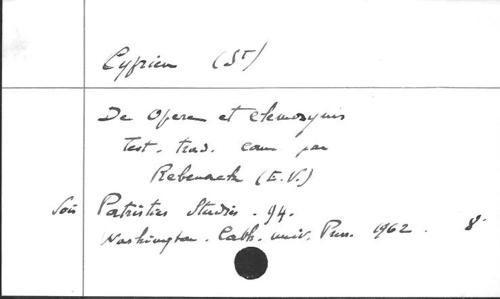 Cyprien (St)
De Opere et eleemosynis
Text. trad. com par
Rebenack (E.V.)
Patristics Studies. 94.
Washington. Cath. univ. Press. 1962. 8°